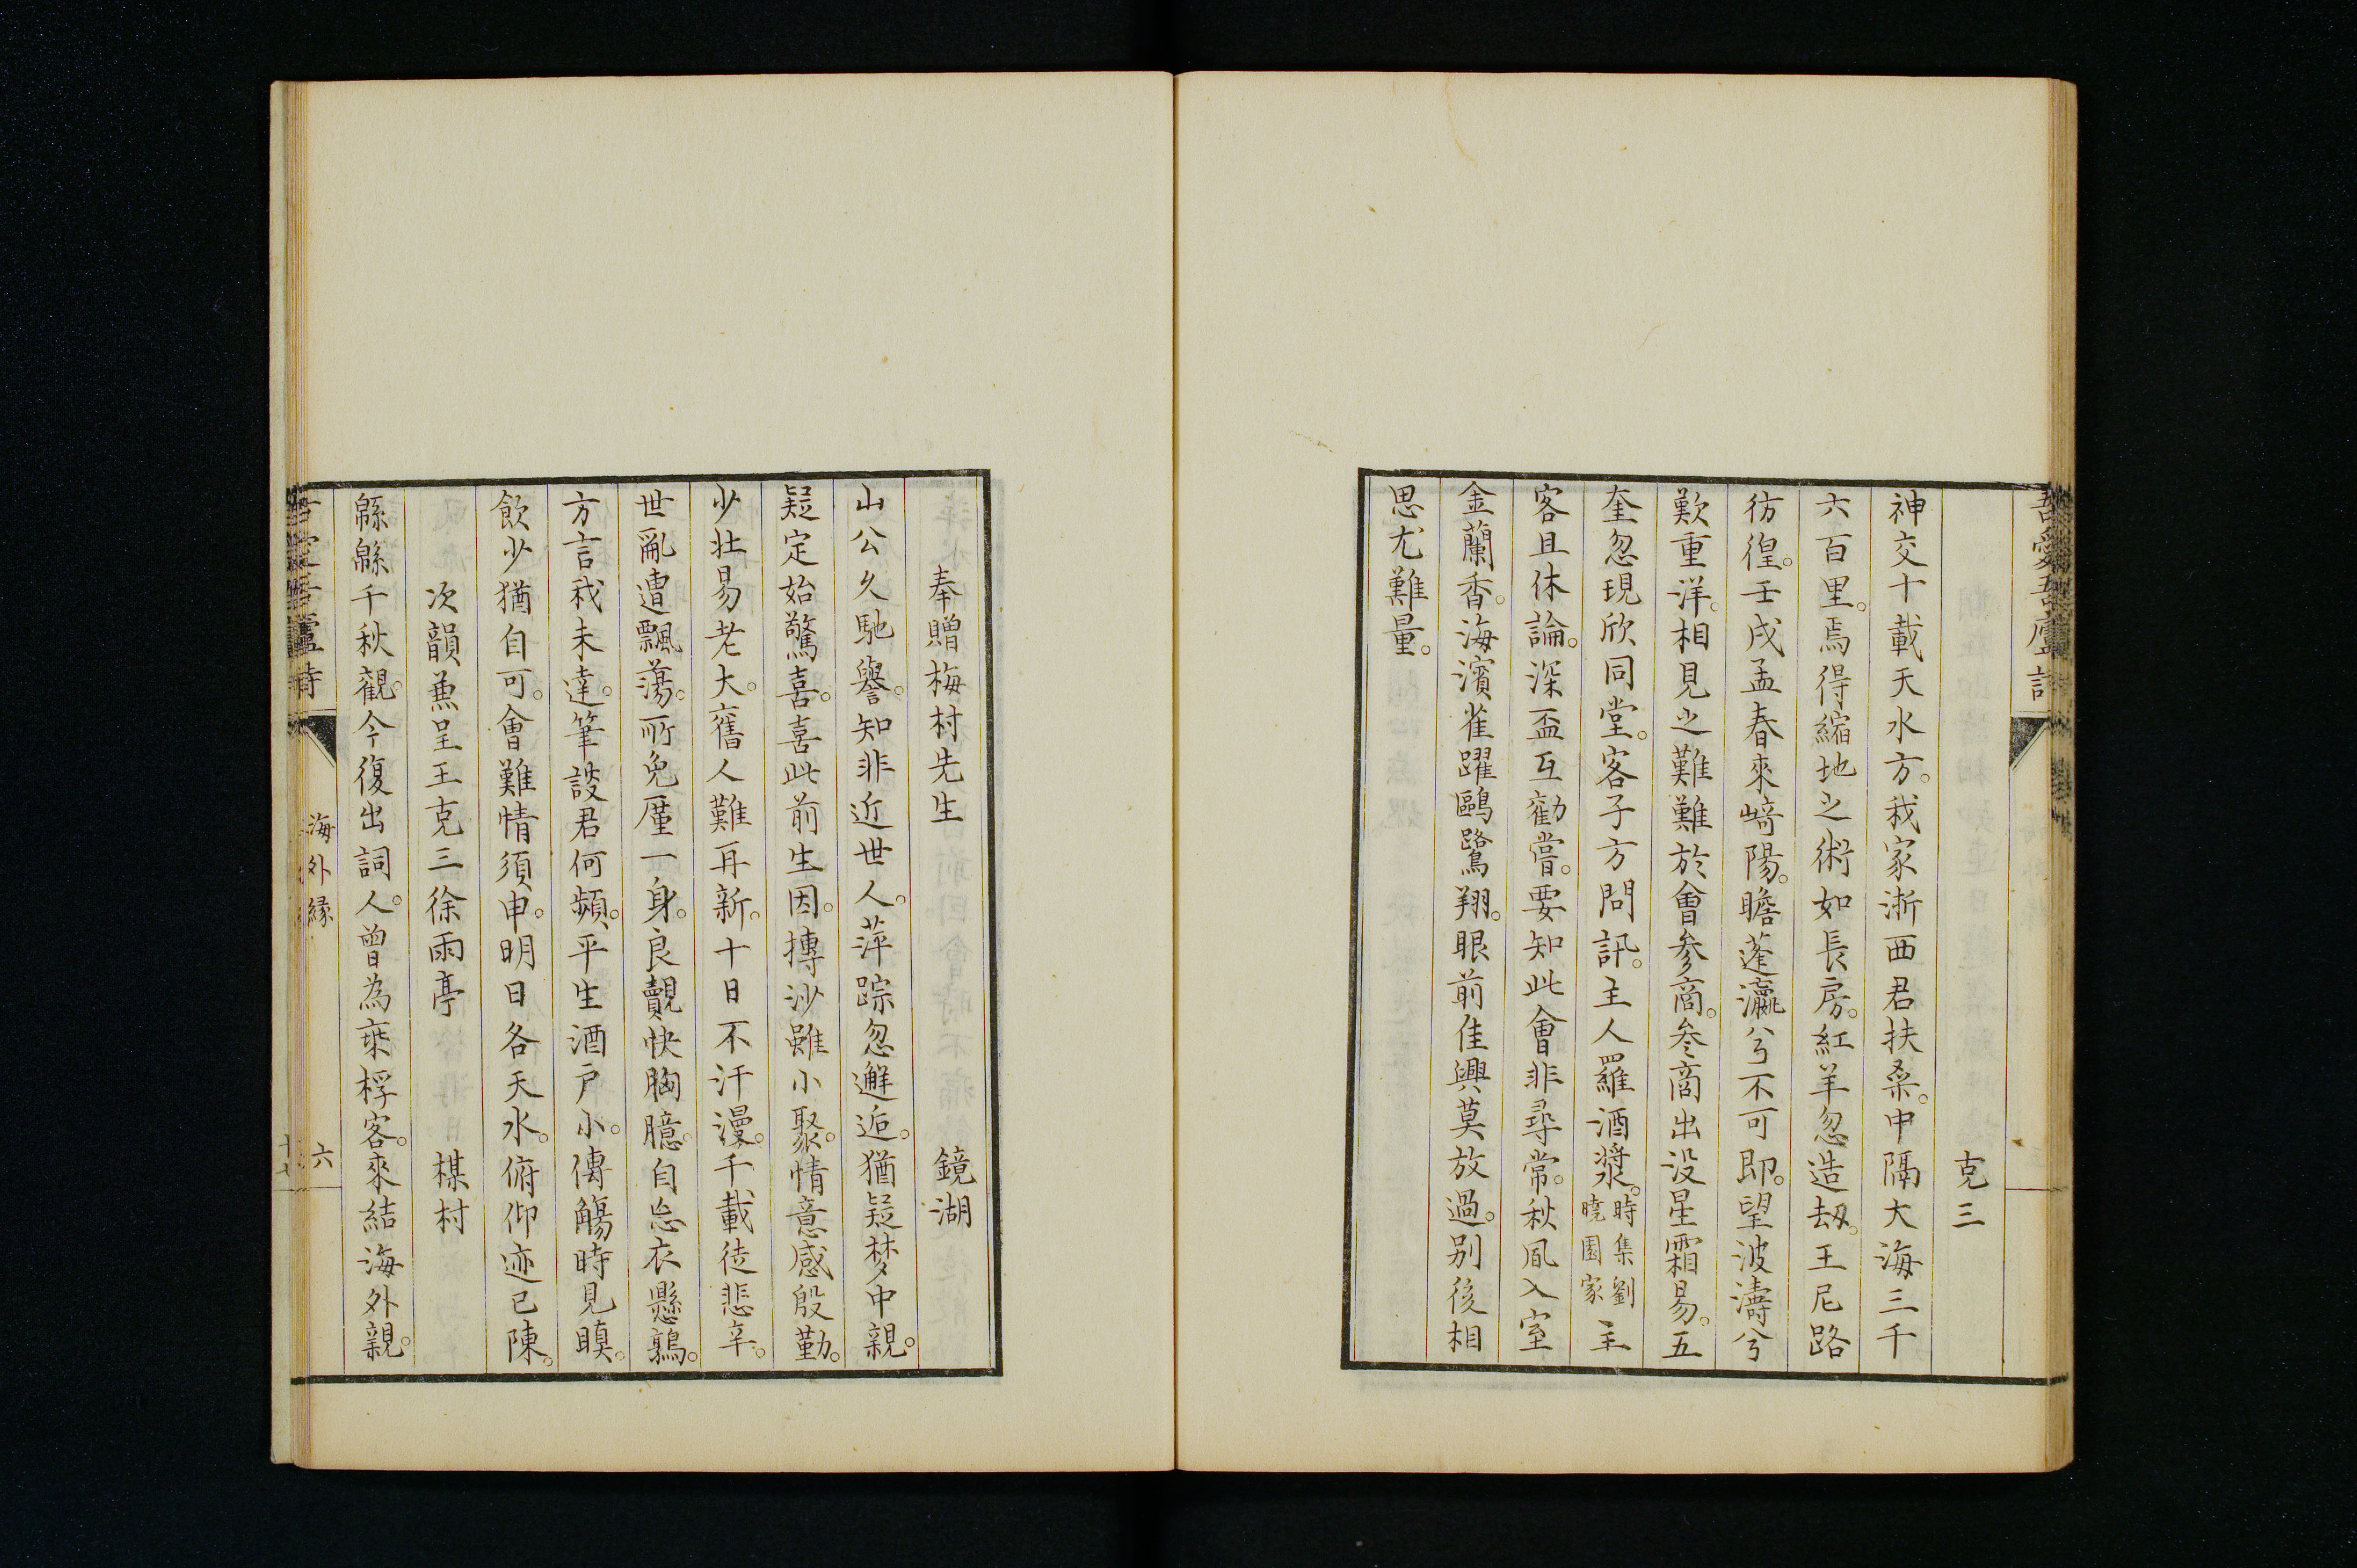 吾愛吾廬詩
克三
神交十載天水方。我家浙西君扶桑。中隔大海三千
六百里。焉得縮地之術如長房。紅羊忽造劫。王尼路
彷徨。壬戌孟春來崎陽。瞻蓬瀛兮不可即。望波濤兮
歎重洋。相見之難難於會參商。參商出没星霜易。五
奎忽現欣同堂。客子方問訊。主人羅酒漿。時集劉曉園家主
客且休論。深盃互勸嘗。要知此會非尋常。秋風入室
金蘭香。海濱雀躍鷗鷺翔。眼前佳興莫放過。别後相
思尤難量。
奉贈梅村先生 鏡湖
山公久馳譽。知非近世人。萍踪忽邂逅。猶疑梦中親。
疑定始驚喜。喜此前生因。摶沙雖小聚。情意感殷勤。
少壯易老大。舊人難再新。十日不汗漫。千載徒悲辛。
世亂遭飄蕩。所免廑一身。良覿快胸臆。自忘衣懸鶉。
方言我未達。筆談君何頻。平生酒户小。傳觴時見瞋。
飲少猶自可。會難情須申。明日各天水。俯仰迹已陳。
次韻兼呈王克三徐雨亭 楳村
緜緜千秋觀。今復出詞人。曾為乘桴客。來結海外親。
海外縁
六